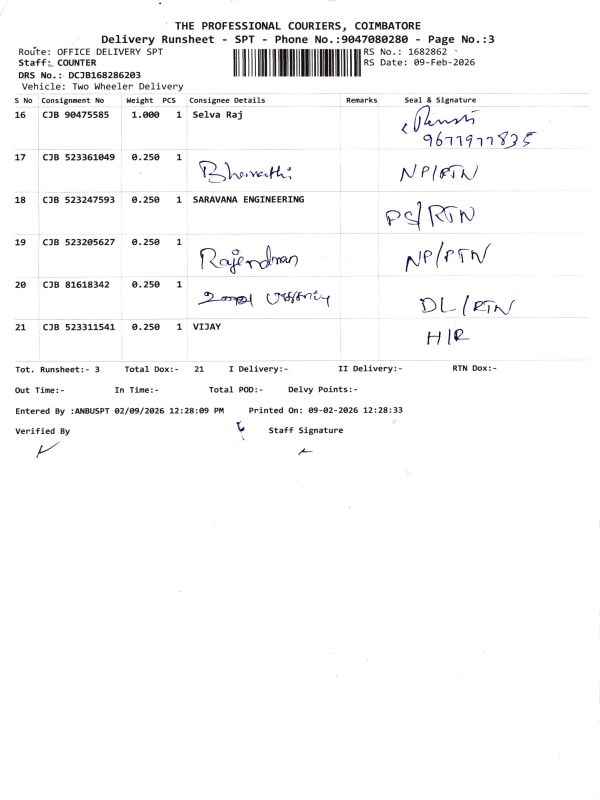 THE PROFESSIONAL COURIERS, COIMBATORE
Delivery Runsheet - SPT - Phone No.:9047080280 - Page No.:3
Route: OFFICE DELIVERY SPT RS No.: 1682862
Staff: COUNTER RS Date: 09-Feb-2026
DRS No.: DCJB168286203
Vehicle: Two Wheeler Delivery
S No Consignment No Weight PCS Consignee Details Remarks Seal & Signature
16 CJB 90475585 1.000 1 Selva Raj
9677977835
17 CJB 523361049 0.250 1 Bharathi NP/RTN
18 CJB 523247593 0.250 1 SARAVANA ENGINEERING PS/RTN
19 CJB 523205627 0.250 1 Rajendran NP/RTN
20 CJB 81618342 0.250 1 DL/RTN
21 CJB 523311541 0.250 1 VIJAY H/R
Tot. Runsheet:- 3 Total Dox:- 21 I Delivery:- II Delivery:- RTN Dox:-
Out Time:- In Time:- Total POD:- Delvy Points:-
Entered By :ANBUSPT 02/09/2026 12:28:09 PM Printed On: 09-02-2026 12:28:33
Verified By Staff Signature